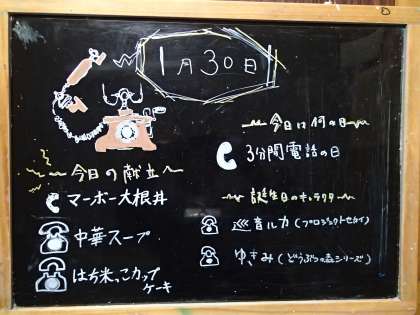 1月30日
今日の献立
マーボー大根丼
中華スープ
はち米っこカップ
ケーキ
今日は何の日
3分間電話の日
誕生日のキャラクタ
音ルカ(プロジェクトセカイ)
ゆきみ(どうぶつの森シリーズ)